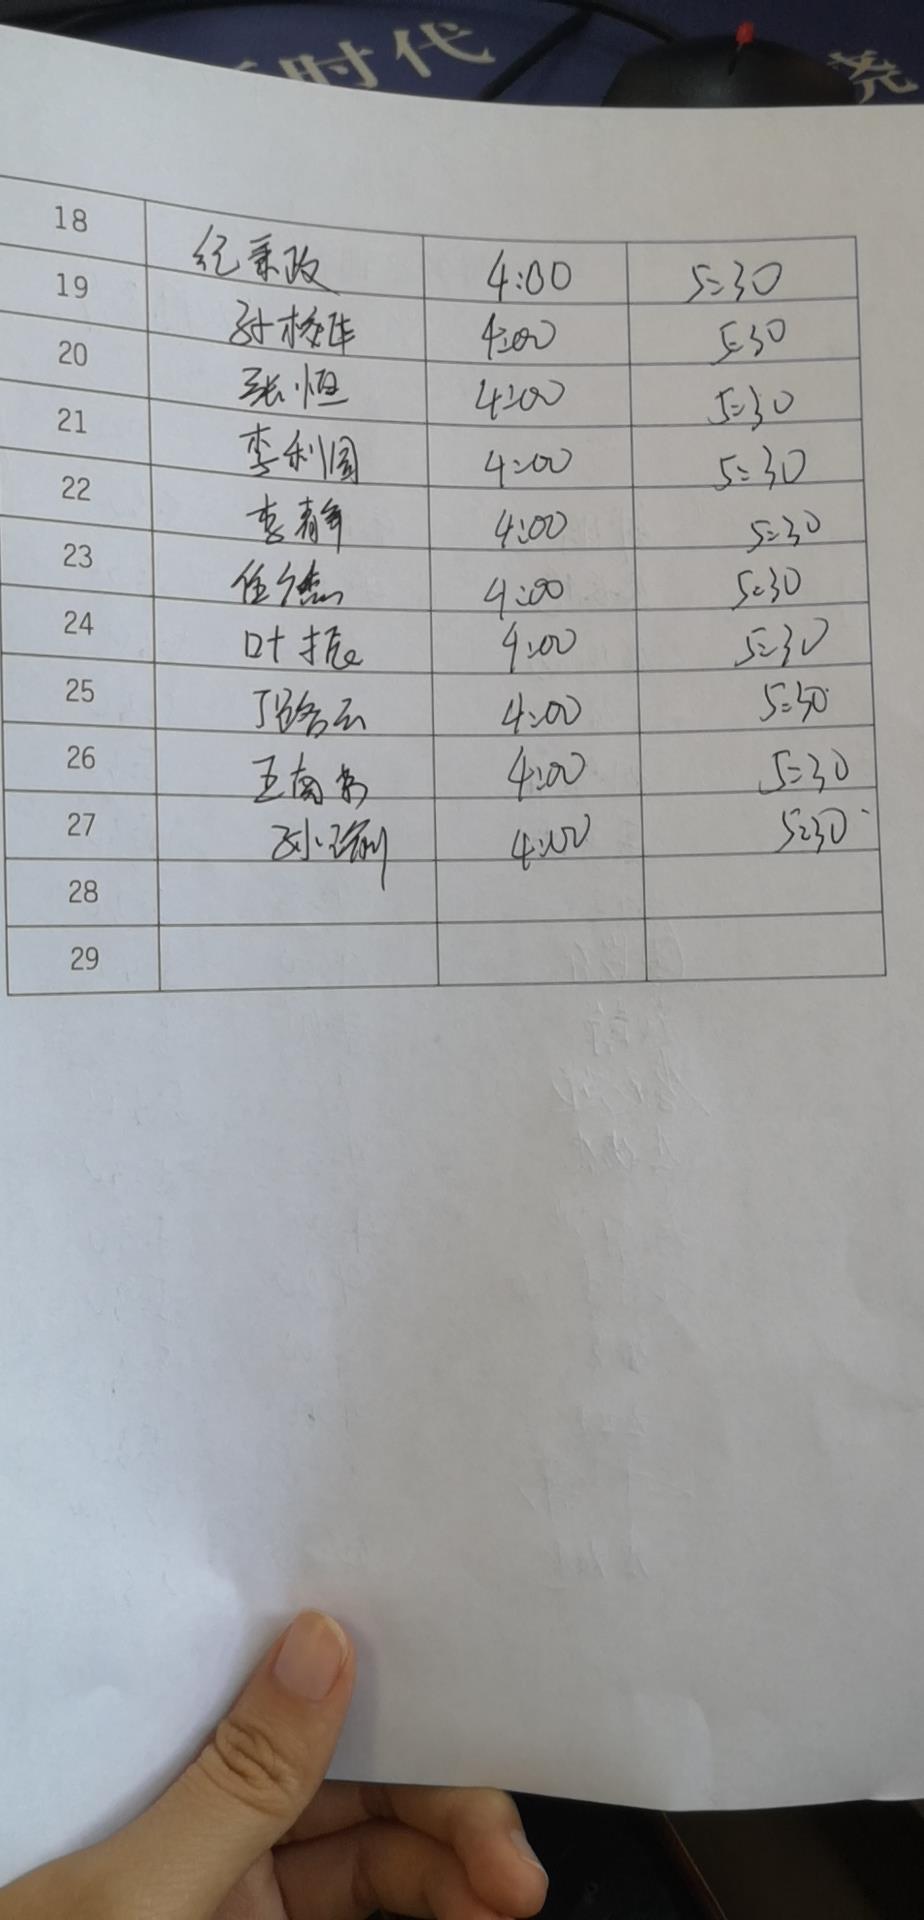 时代
尧
18 纪秉政 4:00 5:30
19 孙 4:00 5:30
20 张恒 4:00 5:30
21 李利国 4:00 5:30
22 李静 4:00 5:30
23 任德杰 4:00 5:30
24 叶振 4:00 5:30
25 4:00 5:30
26 王南 4:00 5:30
27 孙 4:00 5:30
28
29